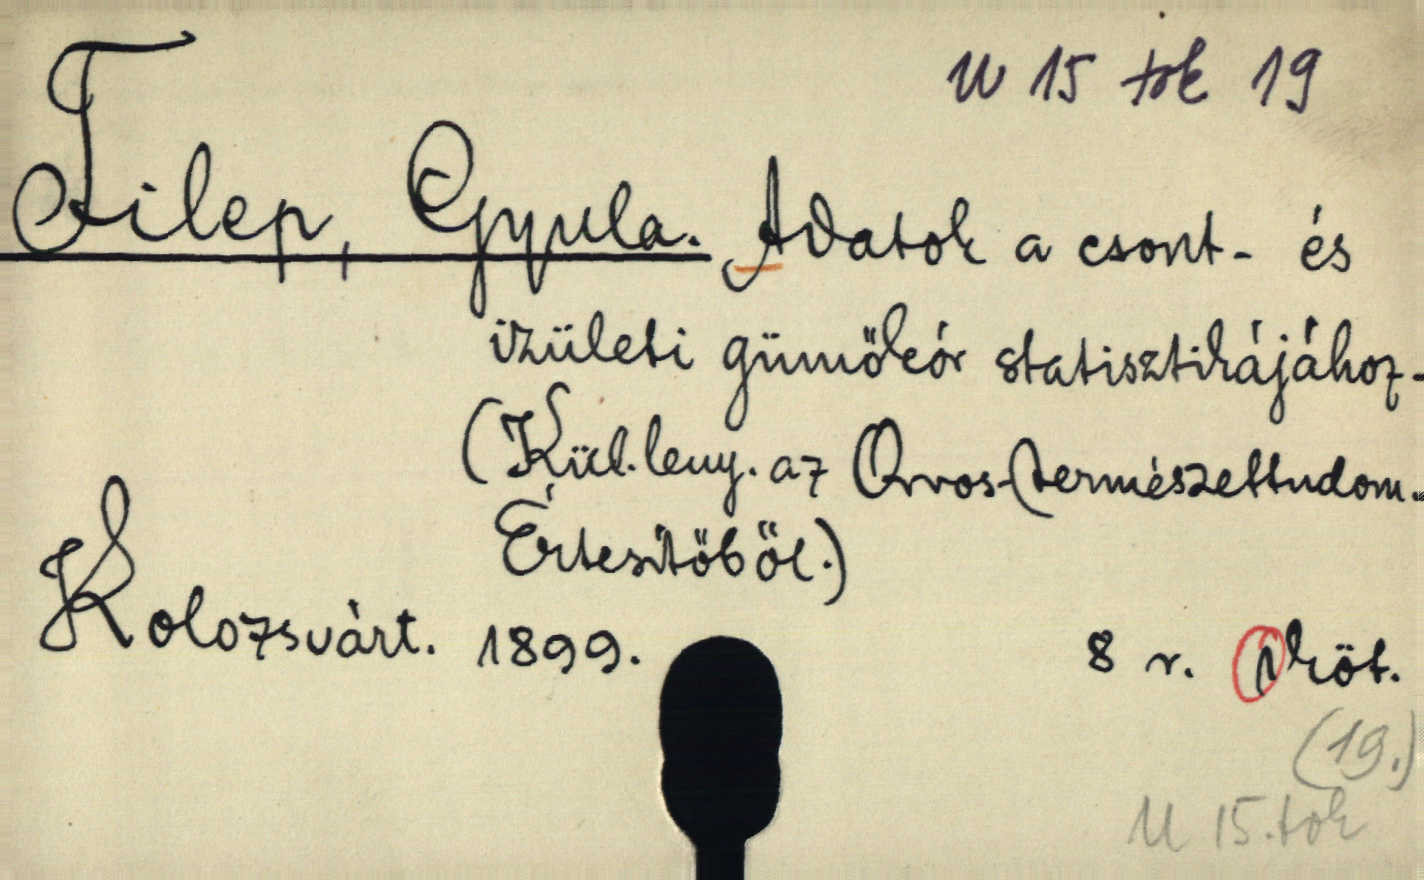 U 15 tok 19
Filep, Gyula. Adatok a csont- és
izületi gümőkór statisztikájához.
(Kül. leny. az Orvos-(természettudom.
Értesítőből.)
Kolozsvárt. 1899. 8 r. 1 köt.
(19.)
U 15. tok